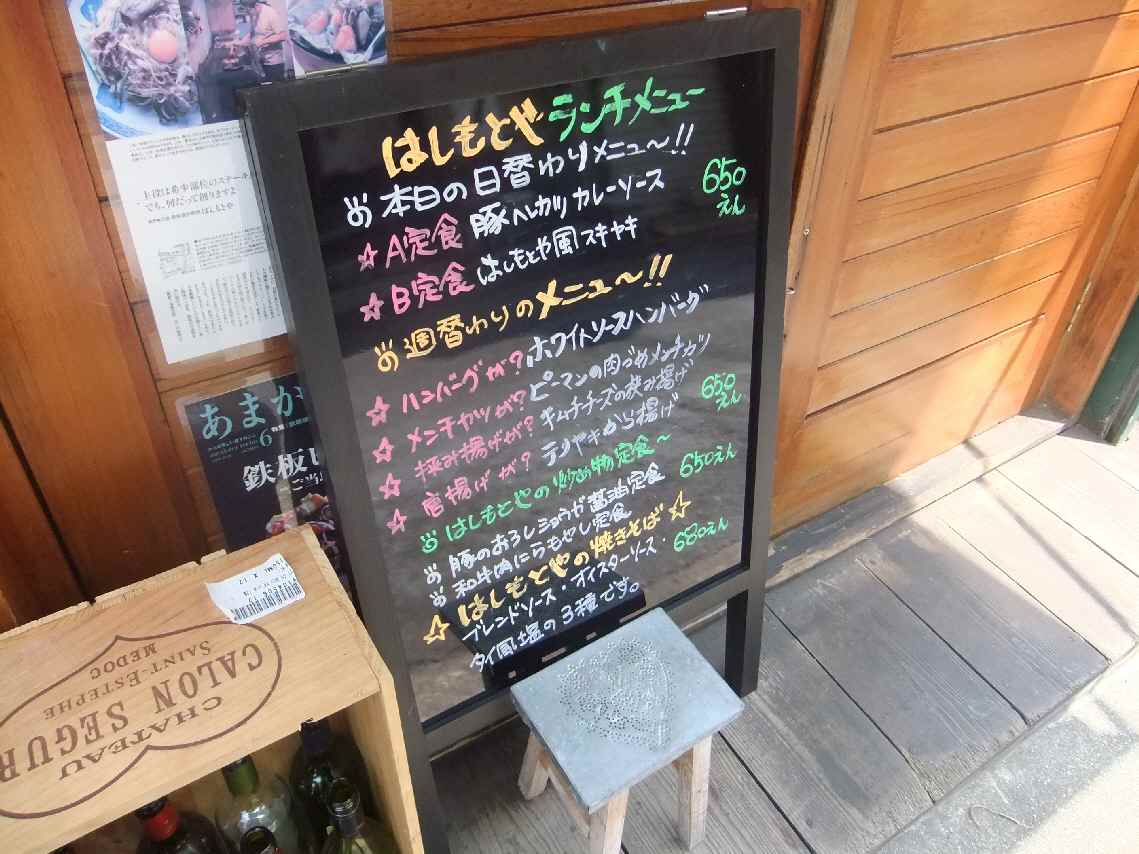 はしもとやランチメニュー
本日の日替わりメニュー〜!!
☆A定食 豚ヘレカツ カレーソース
650えん
☆B定食 はしもとや風スキヤキ
週替わりのメニュー〜!!
☆ハンバーグが? ホワイトソースハンバーグ
☆メンチカツが? ピーマンの肉づめメンチカツ
☆挟み揚げが? キムチチーズの挟み揚げ
650えん
☆唐揚げが? テリヤキから揚げ
はしもとやの炒め物定食〜
650えん
豚のおろしショウガ醤油定食
和牛肉にらもやし定食
☆はしもとやの焼きそば☆
680えん
ブレンドソース・オイスターソース・
タイ風塩の3種です。
主役はあ
のスチール
"でも、何だって創りますよ
はしもとや
あまか
6
鉄板
CHATEAU
CALON SEGUR
SAINT-ESTEPHE
MEDOC